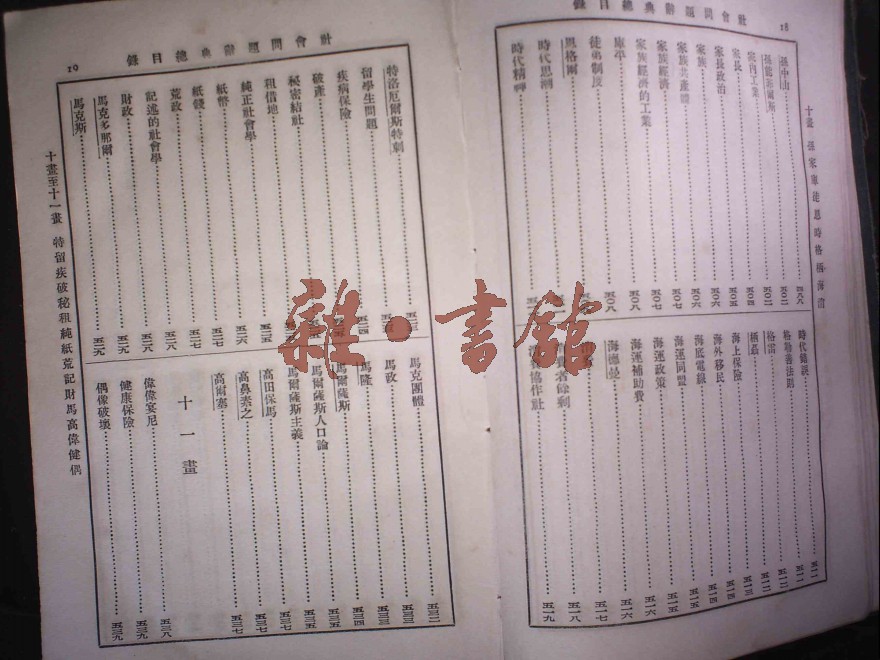 社會問題辭典總目錄
18
十畫 孫家庫徒恩時格栖海消
孫中山 四八八
孫德邦爾斯
家內工業
家長 五〇四
家長政治 五〇五
家族 五〇六
家族共產體 五〇六
家族經濟 五〇七
家族經濟的工業 五〇八
庫平 五〇八
徒弟制度
恩格爾
時代思潮
時代精神
時代錯誤 五一一
格勒善法則
格雷 五一二
栖磊 五一三
海上保險 五一四
海外移民 五一四
海底電線 五一五
海運同盟 五一五
海運政策 五一六
海運補助費 五一六
海德曼 五一七
者餘剩 五一八
協作社 五一九
社會問題辭典總目錄
19
特洛厄爾斯特剌
留學生問題
疾病保險
破產
秘密結社
租借地 五二五
純正社會學 五二六
紙幣 五二七
紙錢 五二七
荒政 五二八
記述的社會學 五二八
財政 五二九
馬克多那爾 五二九
馬克斯 五二九
馬克團體 五三二
馬政 五三三
馬隆 五三三
馬爾薩斯 五三四
馬爾薩斯人口論 五三五
馬爾薩斯主義 五三五
高田保馬 五三六
高鼻素之 五三七
高爾塞 五三七
十一畫
偉偉宴尼 五三八
健康保險 五三九
偶像破壞 五三九
十畫至十一畫 特留疾破秘租純紙荒記財馬高偉健偶
雜·書館